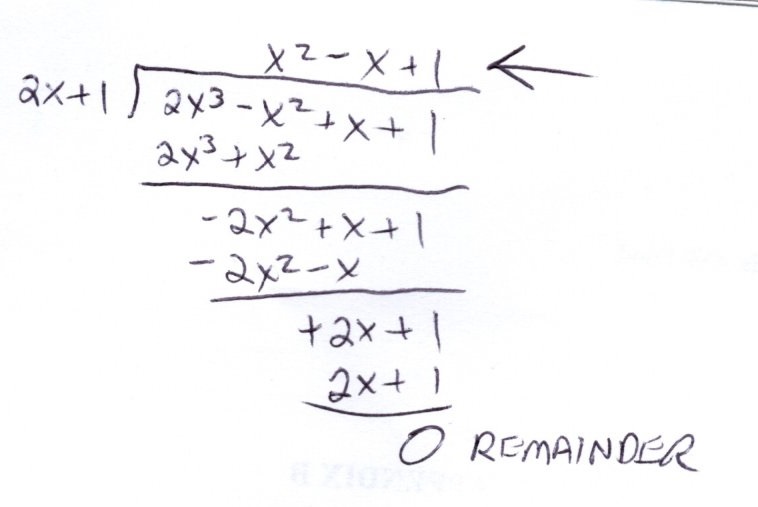 x² - x + 1
2x+1 ) 2x³ - x² + x + 1
2x³ + x²
-2x² + x + 1
-2x² - x
+2x + 1
2x + 1
0 REMAINDER